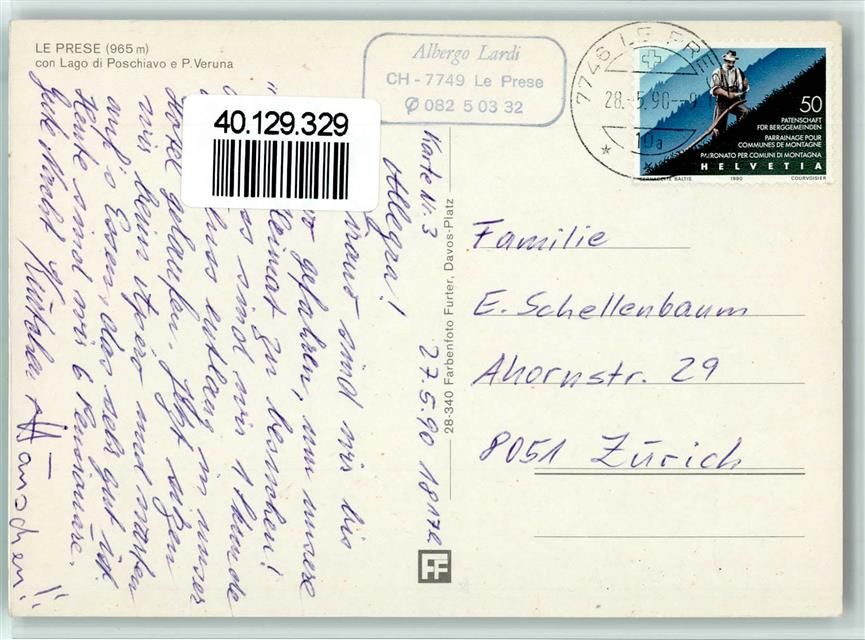 LE PRESE (965 m)
con Lago di Poschiavo e P. Veruna
Albergo Lardi
CH - 7749 Le Prese
✆ 082 5 03 32
7746 LE PRE
28.-5.90.--9
10a
50
PATENSCHAFT
FÜR BERGGEMEINDEN
PARRAINAGE POUR
COMMUNES DE MONTAGNE
PATRONATO PER COMUNI DI MONTAGNA
HELVETIA
BERNADETTE BALTIS 1990 COURVOISIER
40.129.329
Karte Nr. 3 27.5.90 1817h
Allegra!
sind wir bis
gefahren, um unsere
Heimat zu besuchen!
sind wir 1 Stunde
entlang in unser
Hotel gelaufen. Jetzt sitzen
wir beim Apéro und warten
auf's Essen, das sehr gut ist.
Heute sind wir 6 Pensionäre.
Gute Nacht
Hänschen!!
28-340 Farbenfoto Furter, Davos-Platz
FF
Familie
E. Schellenbaum
Ahornstr. 29
8051 Zürich